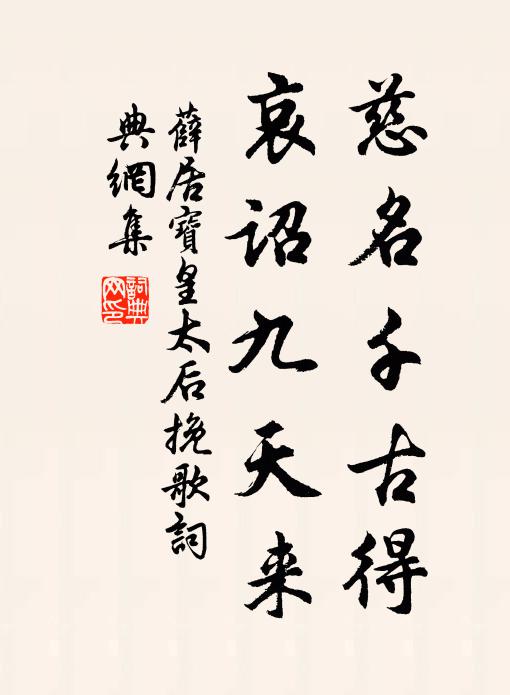 慈名千古得
哀诏九天来
薛居寶皇太后挽歌詞
典網集
詞典
网印